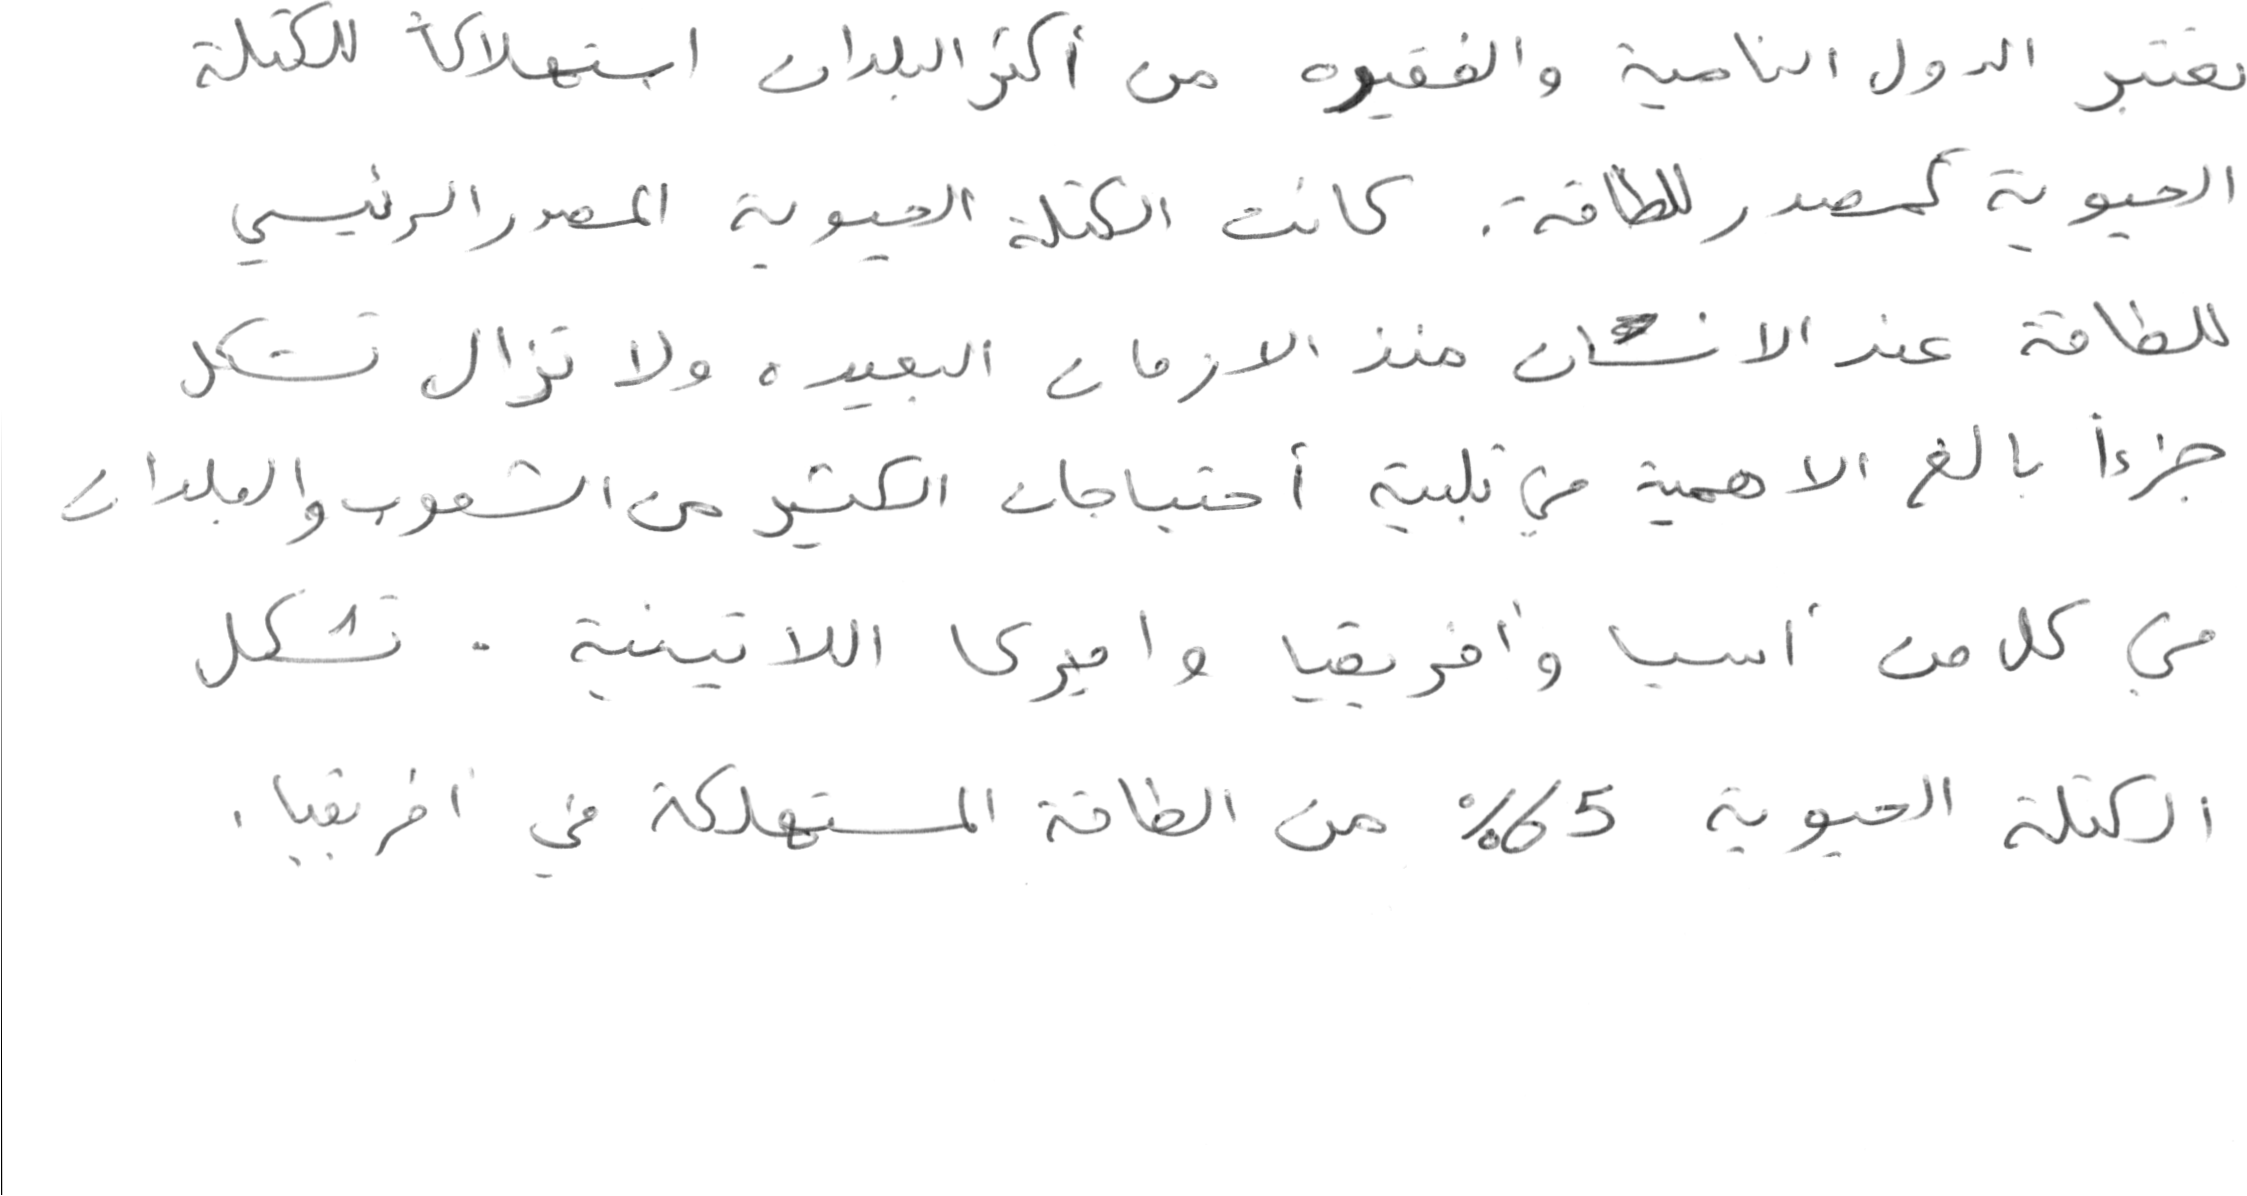 تعتبر الدول النامية والفقيره من أكثر البلدان استهلاكاً للكتلة
الحيوية كمصدر للطاقة. كانت الكتلة الحيوية المصدر الرئيسي
للطاقة عند الانسان منذ الازمان البعيده ولا تزال تشكل
جزءاً بالغ الاهمية في تلبية أحتياجات الكثير من الشعوب والبلدان
في كل من أسيا وأفريقيا واميركا اللاتينية. تشكل
الكتلة الحيوية 65% من الطاقة المستهلكة في أفريقيا.